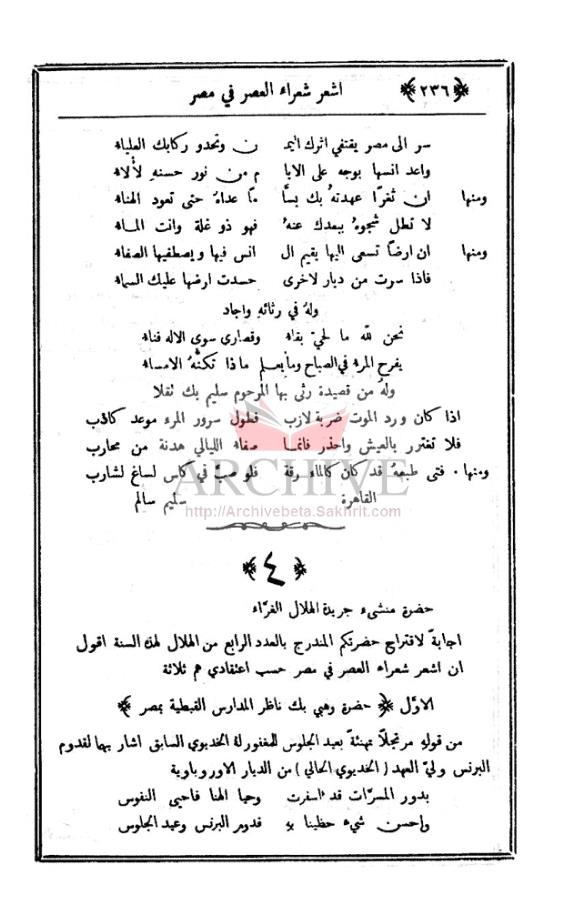 ﴿٢٣٦﴾ اشعر شعراء العصر في مصر
سر الى مصر يقتفي اثرك اليمـ ـن وتحدو ركابك العلياء
واعد انسها بوجه على الايا م من نور حسنهِ لألاء
ومنها ان ثغرًا عهدتهُ بك بسَّا مًا عداهُ حتى تعود الهناء
لا تطل شجوهُ ببعدك عنهُ فهو ذو غلة وانت الماء
ومنها ان ارضًا تسعى اليها يقيم ال انس فيها ويصطفيها الصفاء
فاذا سرت من ديار لاخرى حسدت ارضها عليك السماء
ولهُ في رثائهِ واجاد
نحن لله ما لحيّ بقاء وقصارى سوى الاله فناء
يفرح المرء في الصباح وما يعلم ماذا تكنُّهُ الامساء
ولهُ من قصيدة رثى بها المرحوم سليم بك نقلا
اذا كان ورد الموت ضربة لازب فطول سرور المرء موعد كاذب
فلا تغترر بالعيش واحذر فانما صفاء الليالي هدنة من محارب
ومنها . فتى طبعهُ قد كان كالماء رقة فلو صب في كاس لساغ لشارب
القاهرة سليم سالم
ARCHIVE
http://Archivebeta.Sakhrit.com
﴿٤﴾
حضرة منشىء جريدة الهلال الغرّاء
اجابةً لاقتراح حضرتكم المندرج بالعدد الرابع من الهلال لهذه السنة اقول
ان اشعر شعراء العصر في مصر حسب اعتقادي هم ثلاثة
الاوّل ﴿ حضرة وهبي بك ناظر المدارس القبطية بمصر ﴾
من قولهِ مرتجلاً تهنئةً بعيد الجلوس للمغفور لهُ الخديوي السابق اشار بها لقدوم
البرنس وليّ العهد ( الخديوي الحالي ) من الديار الاوروباوية
بدور المسرّات قد اسفرت وحيا الهنا فاحيى النفوس
واحسن شيء حظينا بهِ قدوم البرنس وعيد الجلوس